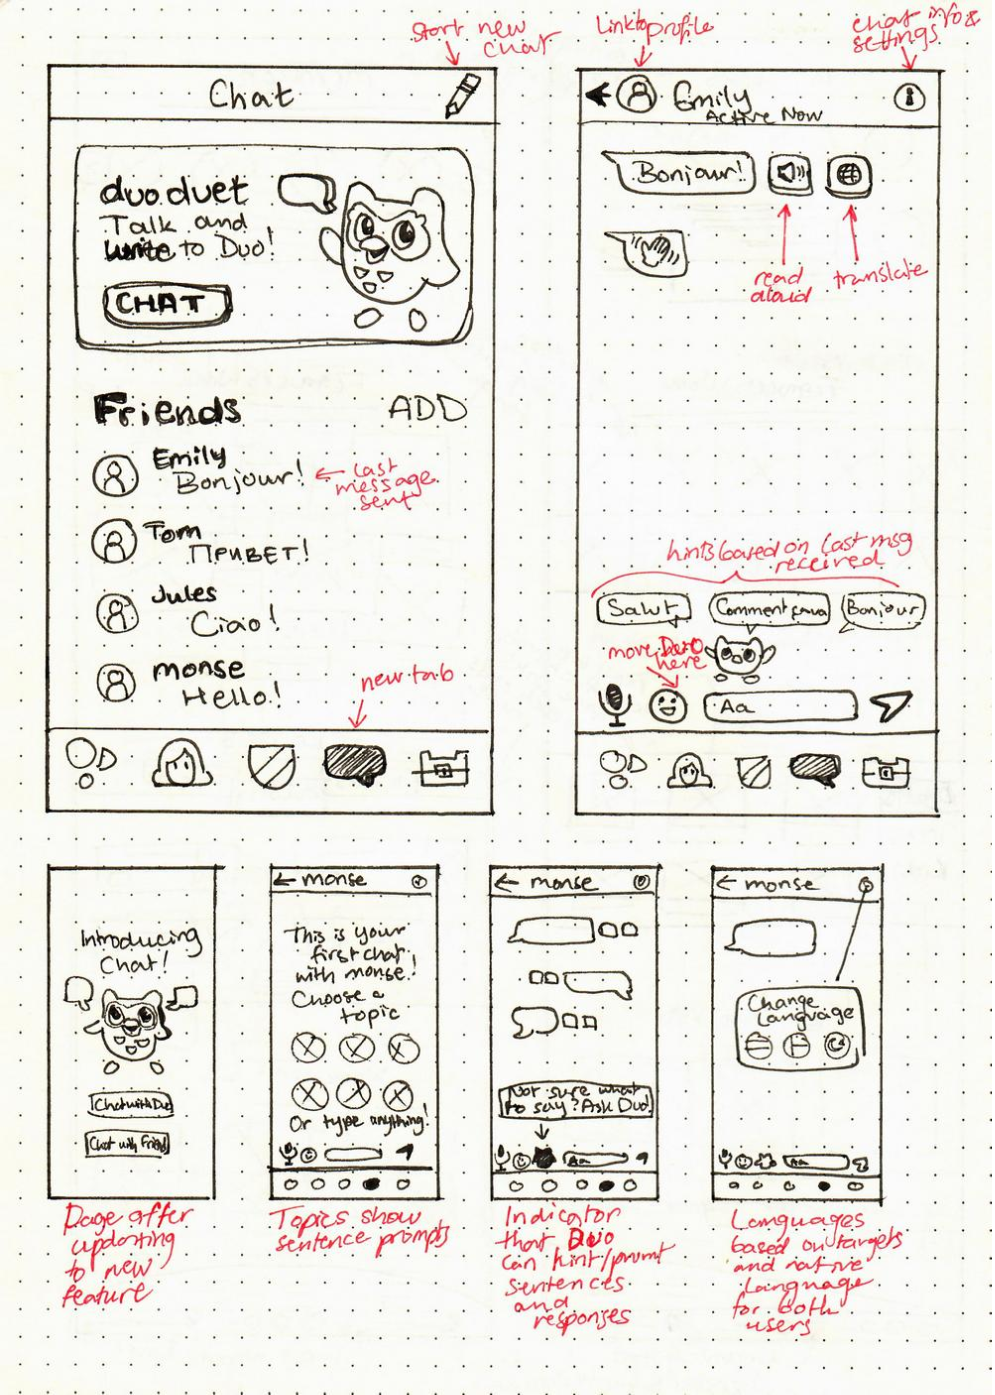 Start new
chat
Link to profile
chat info &
settings
Chat
Emily
Active Now
duo duet
Talk and
write to Duo!
CHAT
Bonjour!
read
aloud
translate
Friends
ADD
Emily
Bonjour!
← last
message
sent
Tom
Привет!
Jules
Ciao!
monse
Hello!
new tab
hints based on last msg
received
Salut
Comment ça va
Bonjour
move Duo
here
Aa
Introducing
Chat!
Chat with Duo
Chat with Friend
Page after
updating
to new
feature
← monse
This is your
first chat
with monse!
Choose a
topic
Or type anything!
Topics show
sentence prompts
← monse
Not sure what
to say? Ask Duo!
Aa
Indicator
that Duo
can hint/prompt
sentences
and
responses
← monse
Change
Language
Aa
Languages
based on targets
and native
language
for both
users